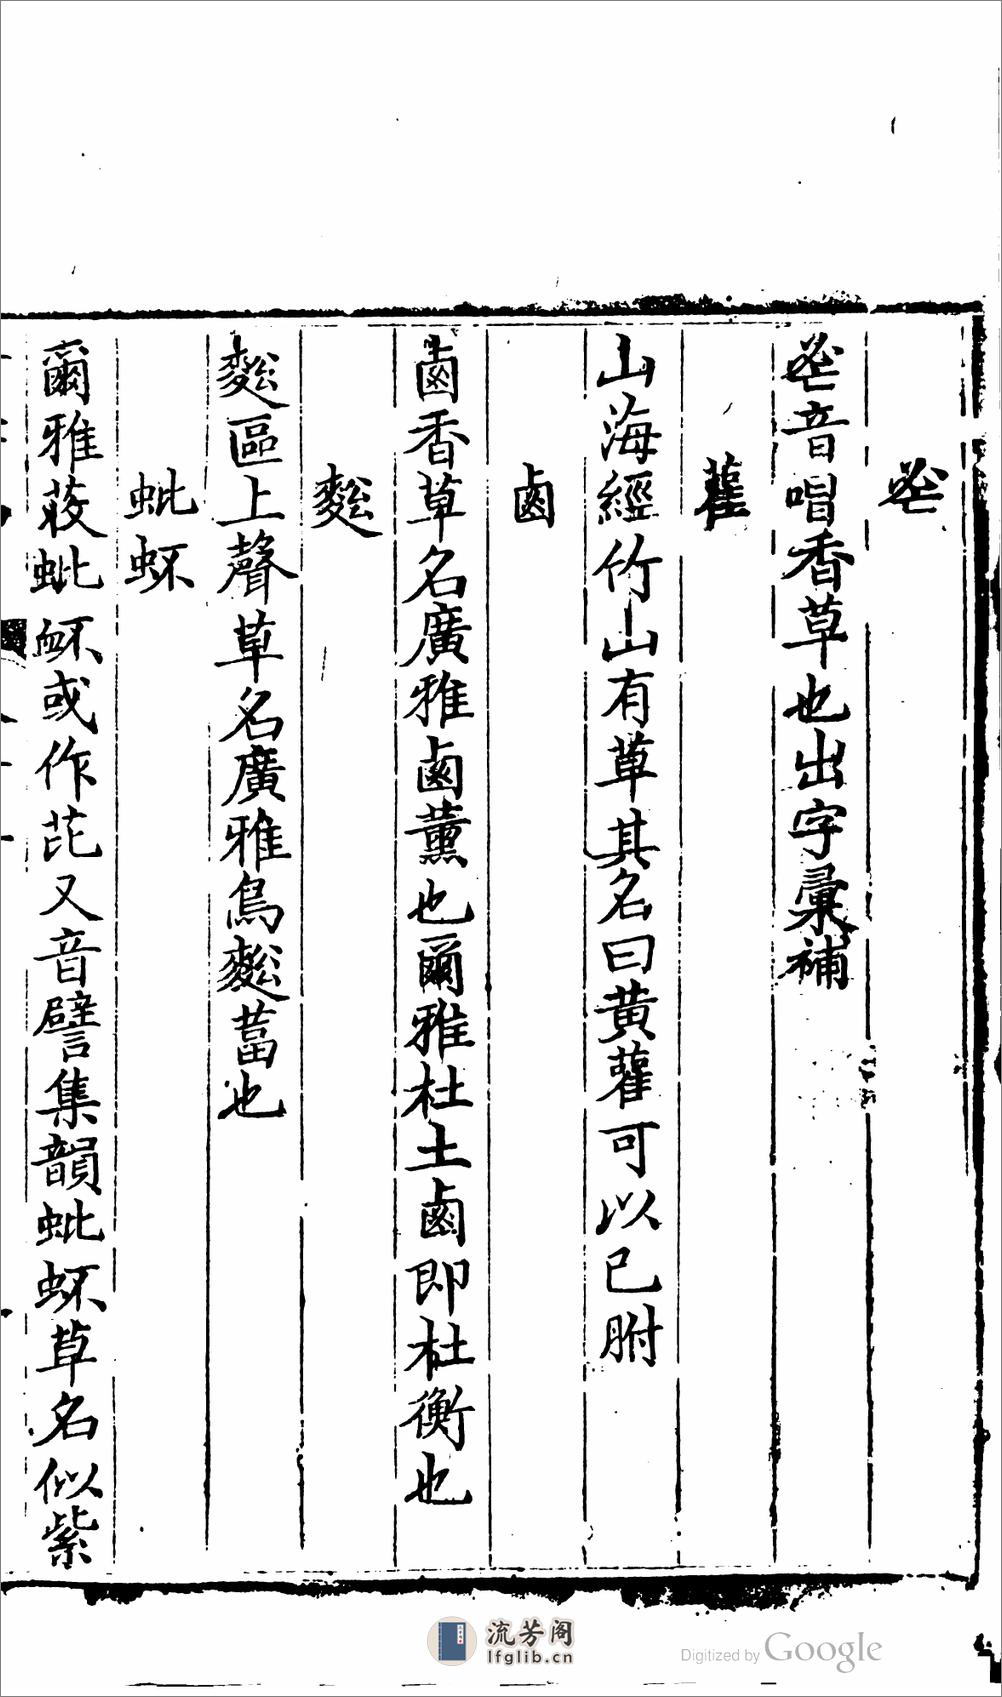 音唱香草也出字彙補
雚
山海經竹山有草其名曰黃雚可以已胕
鹵
鹵香草名廣雅鹵薰也爾雅杜土鹵即杜衡也
區上聲草名廣雅烏葍也
蚍衃
爾雅荍蚍衃或作芘又音譬集韻蚍衃草名似紫
流芳阁
lfglib.cn
Digitized by Google